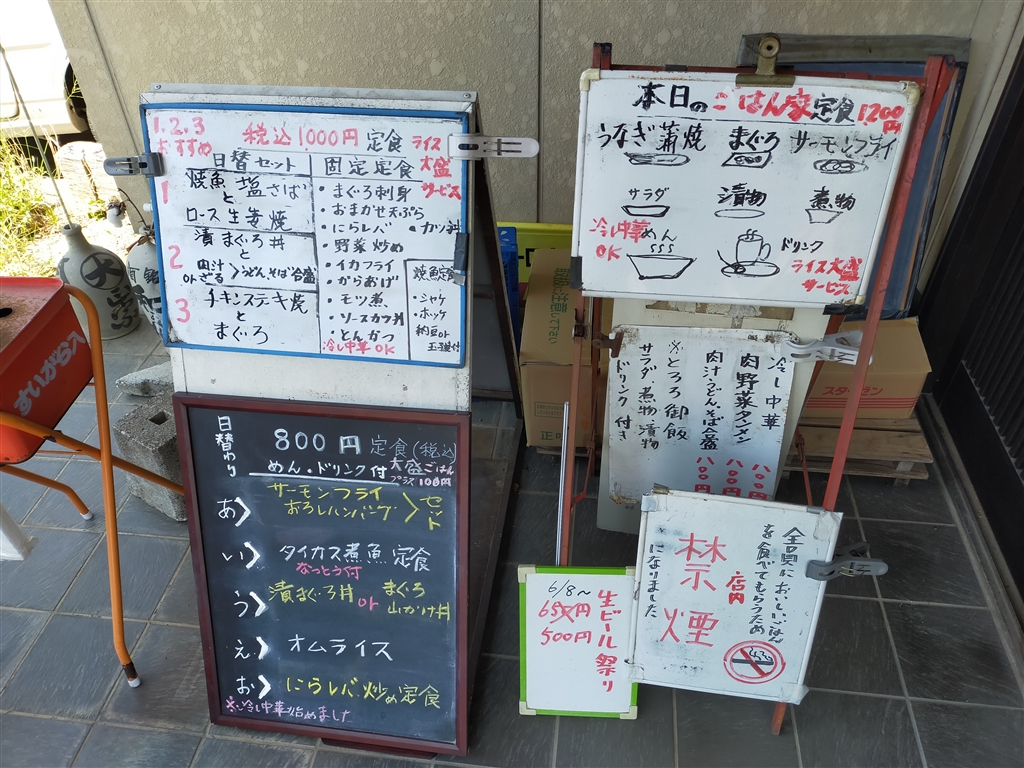 1.2.3
おすすめ
税込1000円定食
ライス
大盛
サービス
日替セット
1
焼魚塩さば
と
ロース生姜焼
2
漬まぐろ丼
と
肉汁
orざる
うどんそば合盛
3
チキンステキ焼
と
まぐろ
固定定食
・まぐろ刺身
・おまかせ天ぷら
・にらレバ
・カツ丼
・野菜炒め
・イカフライ
・からあげ
・モツ煮
・ソースカツ丼
・とんかつ
冷し中華OK
焼魚定食
・シャケ
・ホッケ
納豆or
玉子付
日替わり
800円定食(税込)
めん・ドリンク付
大盛ごはん
プラス100円
あ>
サーモンフライ
おろしハンバーグ
>セット
い>
タイカス煮魚定食
なっとう付
う>
漬まぐろ丼
or
まぐろ
山かけ丼
え>
オムライス
お>
にらレバ炒め定食
※冷し中華始めました
本日のごはん家定食1200円
うなぎ蒲焼
まぐろ
サーモンフライ
サラダ
漬物
煮物
冷し中華
OK
めん
ドリンク
ライス大盛
サービス
冷し中華 八〇〇円
肉野菜タンメン 八〇〇円
肉汁うどんそば合盛 八〇〇円
※とろろ御飯
サラダ煮物漬物
ドリンク付き
6/8～
生ビール祭り
650円
500円
全員においしいごはん
を食べてもらうため
店内
禁煙
になりました
すいがら入
取扱い注意して下さい
スターラン
正
大